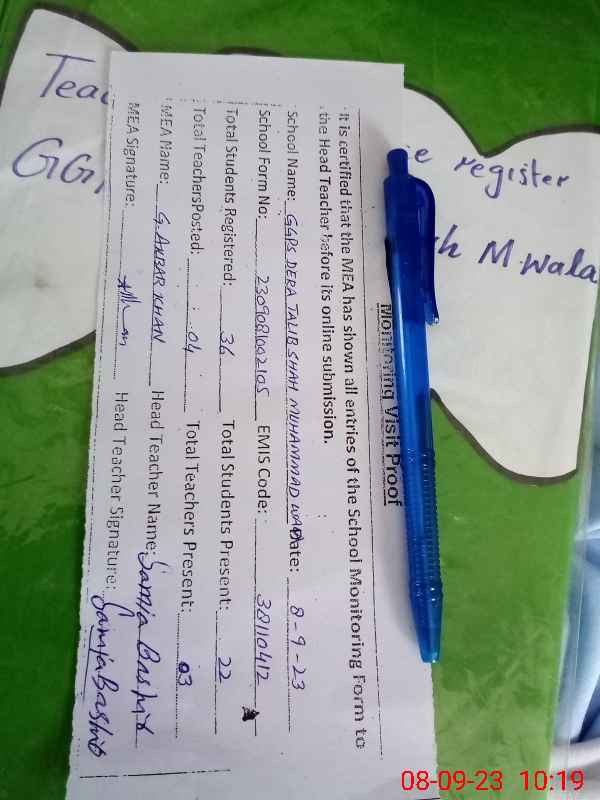 Teac
e register
GGP
h M.wala
Monitoring Visit Proof
It is certified that the MEA has shown all entries of the School Monitoring Form to
the Head Teacher before its online submission.
School Name: GGPS DERA TALIB SHAH MUHAMMAD WALA Date: 8-9-23
School Form No: 2309081002105 EMIS Code: 38110412
Total Students Registered: 36 Total Students Present: 22
Total TeachersPosted: 04 Total Teachers Present: 03
MEA Name: G.AKBAR KHAN Head Teacher Name: Samia Bashir
MEA Signature: Head Teacher Signature: Samia Bashir
08-09-23 10:19